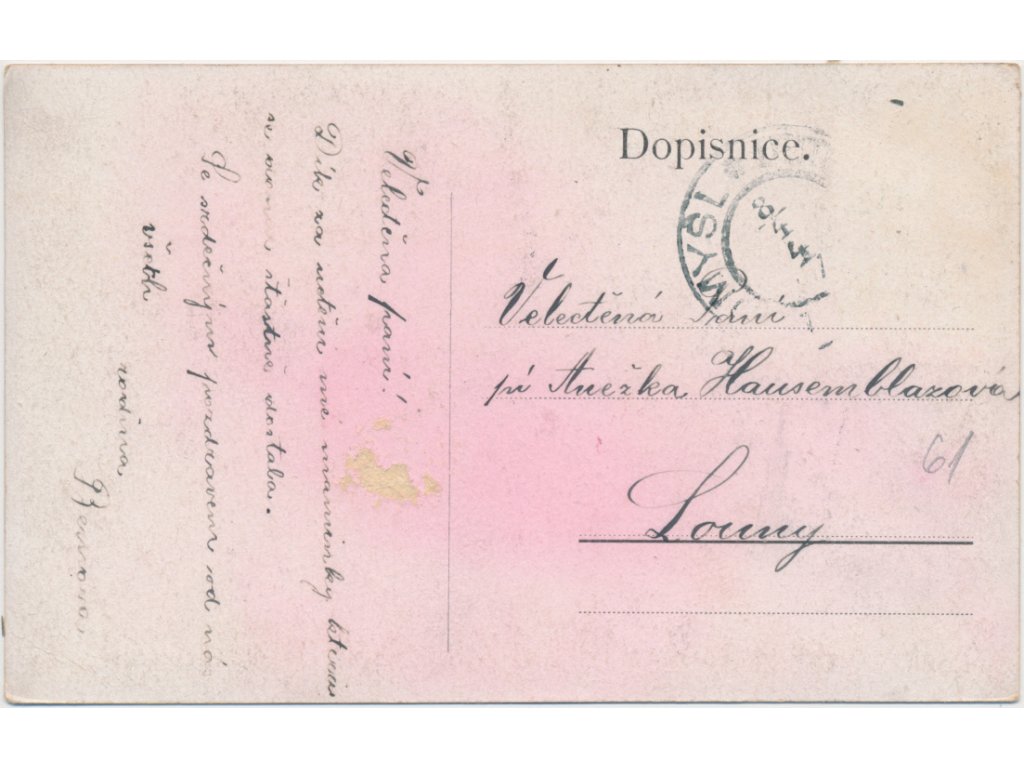 Dopisnice.
MYSL
Velectěná Paní
pí Anežka Hausemblazová
Louny
61
Velectěna paní!
Dík za mě maminky
se šťastně dostala.
Se srdečným pozdravem od nás
všech
rodina